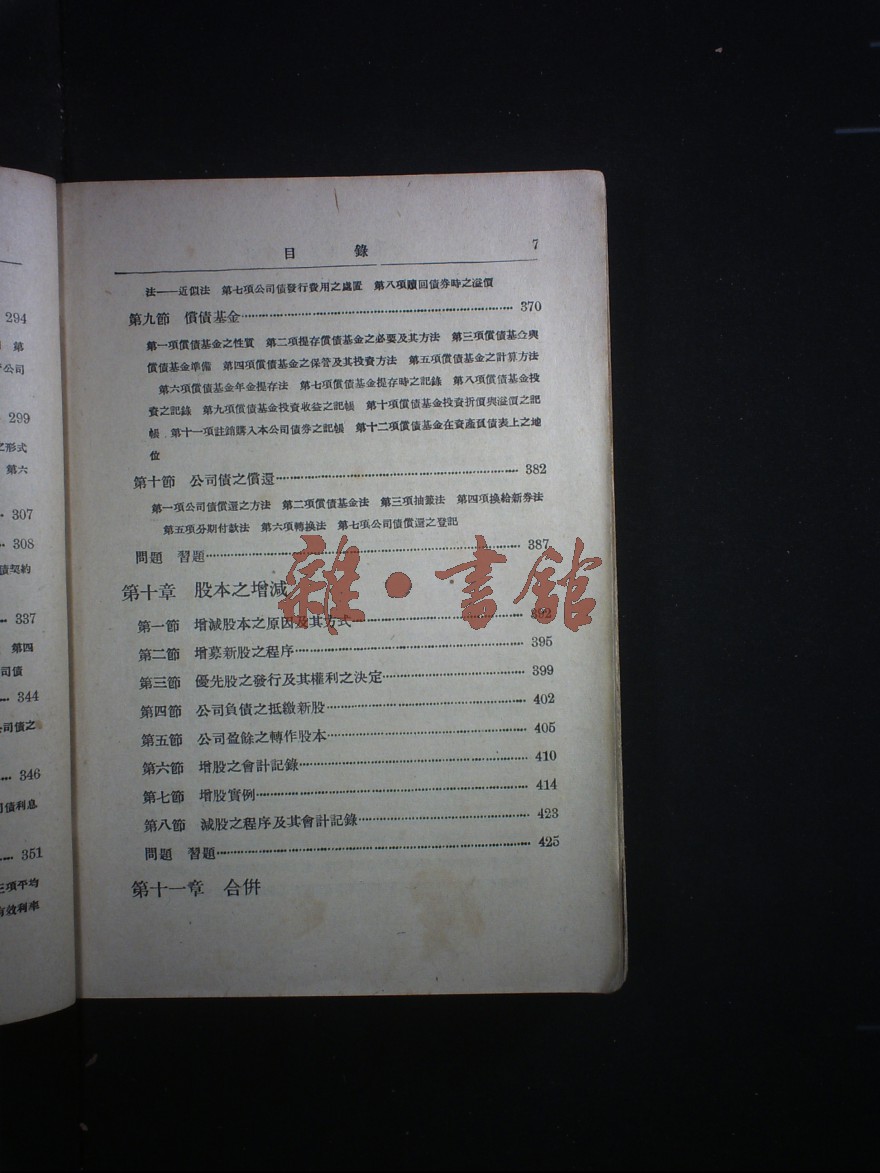 294
第
公司
299
之形式
第六
307
308
債契約
337
第四
司債
344
公司債之
346
司債利息
351
三項平均
有效利率
目錄 7
法——近似法 第七項公司債發行費用之處置 第八項贖回債券時之溢價
第九節 償債基金 370
第一項償債基金之性質 第二項提存償債基金之必要及其方法 第三項償債基金與
償債基金準備 第四項償債基金之保管及其投資方法 第五項償債基金之計算方法
第六項償債基金年金提存法 第七項償債基金提存時之記錄 第八項償債基金投
資之記錄 第九項償債基金投資收益之記帳 第十項償債基金投資折價與溢價之記
帳 第十一項註銷購入本公司債券之記帳 第十二項償債基金在資產負債表上之地
位
第十節 公司債之償還 382
第一項公司債償還之方法 第二項償債基金法 第三項抽籤法 第四項換給新券法
第五項分期付款法 第六項轉換法 第七項公司債償還之登記
問題 習題 387
第十章 股本之增減
雜·書館
第一節 增減股本之原因及其方式 392
第二節 增募新股之程序 395
第三節 優先股之發行及其權利之決定 399
第四節 公司負債之抵繳新股 402
第五節 公司盈餘之轉作股本 405
第六節 增股之會計記錄 410
第七節 增股實例 414
第八節 減股之程序及其會計記錄 423
問題 習題 425
第十一章 合併